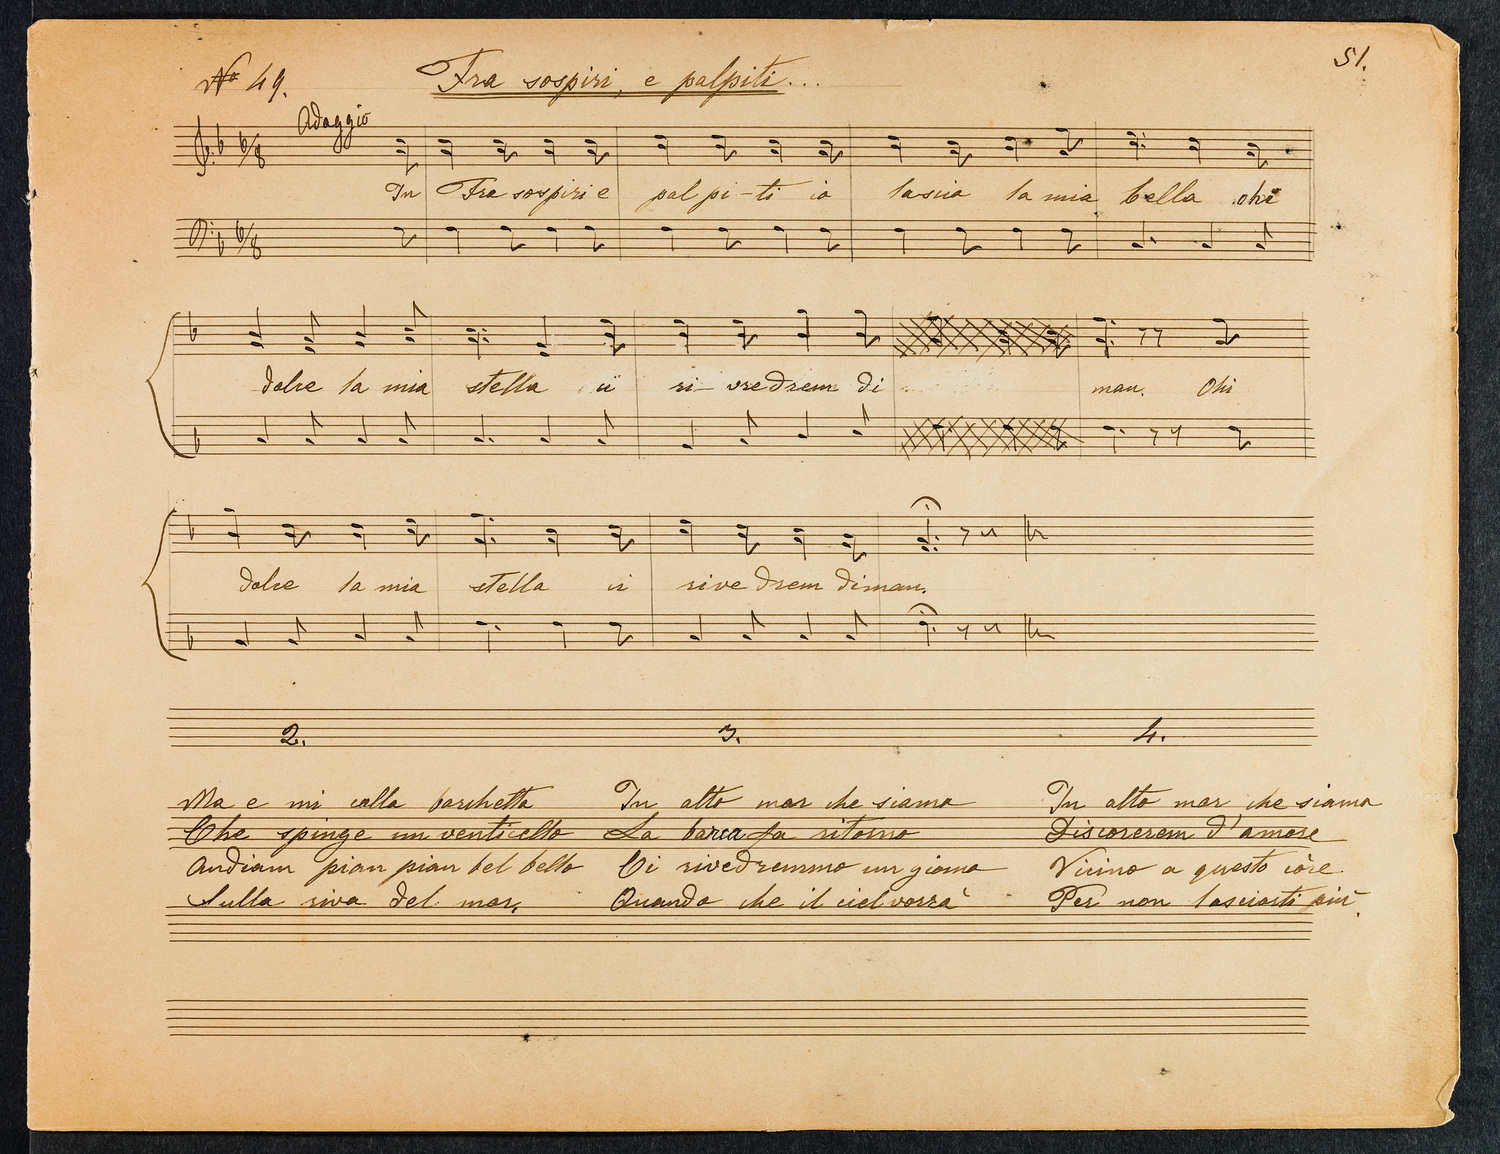 51.
No 49. Fra sospiri, e palpiti...
Adaggio
6/8
In Fra sospiri e pal pi-ti io lascia la mia bella ohi
6/8
dolce la mia stella ci ri- vredrem di man. Ohi
dolce la mia stella ci rive drem diman.
2. 3. 4.
Ma e mi colla barchetta In alto mar che siamo In alto mar che siamo
Che spinge un venticello La barca fa ritorno Discorerem d'amore
Andiam pian pian bel bello Ci rivedremmo un giorno Vicino a questo core
Sulla riva del mar, Quando che il ciel vorrà Per non lasciarti più.